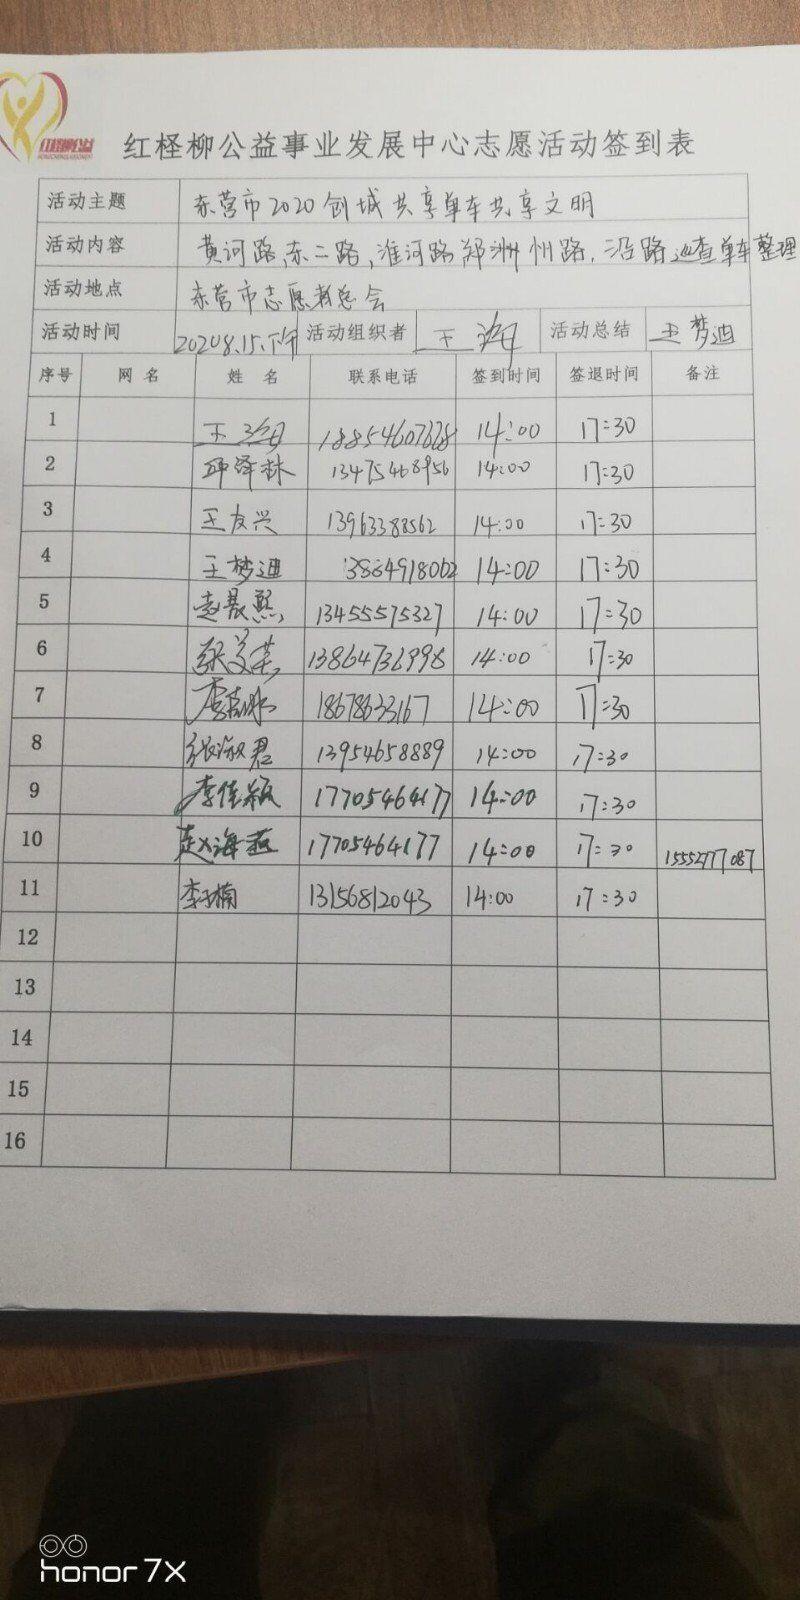 红柽柳公益
红柽柳公益事业发展中心志愿活动签到表
活动主题 东营市2020创城共享单车共享文明
活动内容 黄河路,东二路,淮河路郑洲州路,沿路巡查单车整理
活动地点 东营市志愿者总会
活动时间 20208.15.下午 活动组织者 王海 活动总结 王梦迪
序号 网名 姓名 联系电话 签到时间 签退时间 备注
1 王海 18854607678 14:00 17:30
2 邱泽林 13475468956 14:00 17:30
3 王友兴 13963388562 14:00 17:30
4 王梦迪 3864918062 14:00 17:30
5 赵晟熙 13455575327 14:00 17:30
6 张美英 13864731998 14:00 17:30
7 李 18678633167 14:00 17:30
8 张淑君 13954658889 14:00 17:30
9 李佳颖 17705464177 14:00 17:30
10 赵海燕 17705464177 14:00 17:30 15552777087
11 李楠 13156812043 14:00 17:30
12
13
14
15
16
honor 7X